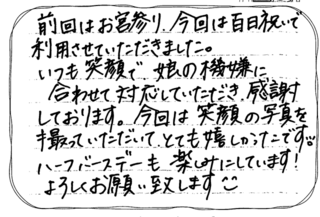 前回はお宮参り、今回は百日祝いで
利用させていただきました。
いつも笑顔で、娘の機嫌に
合わせて対応していただき、感謝
しております。今回は笑顔の写真を
撮っていただいて、とても嬉しかったです
ハーフバースデーも楽しみにしています!
よろしくお願い致します